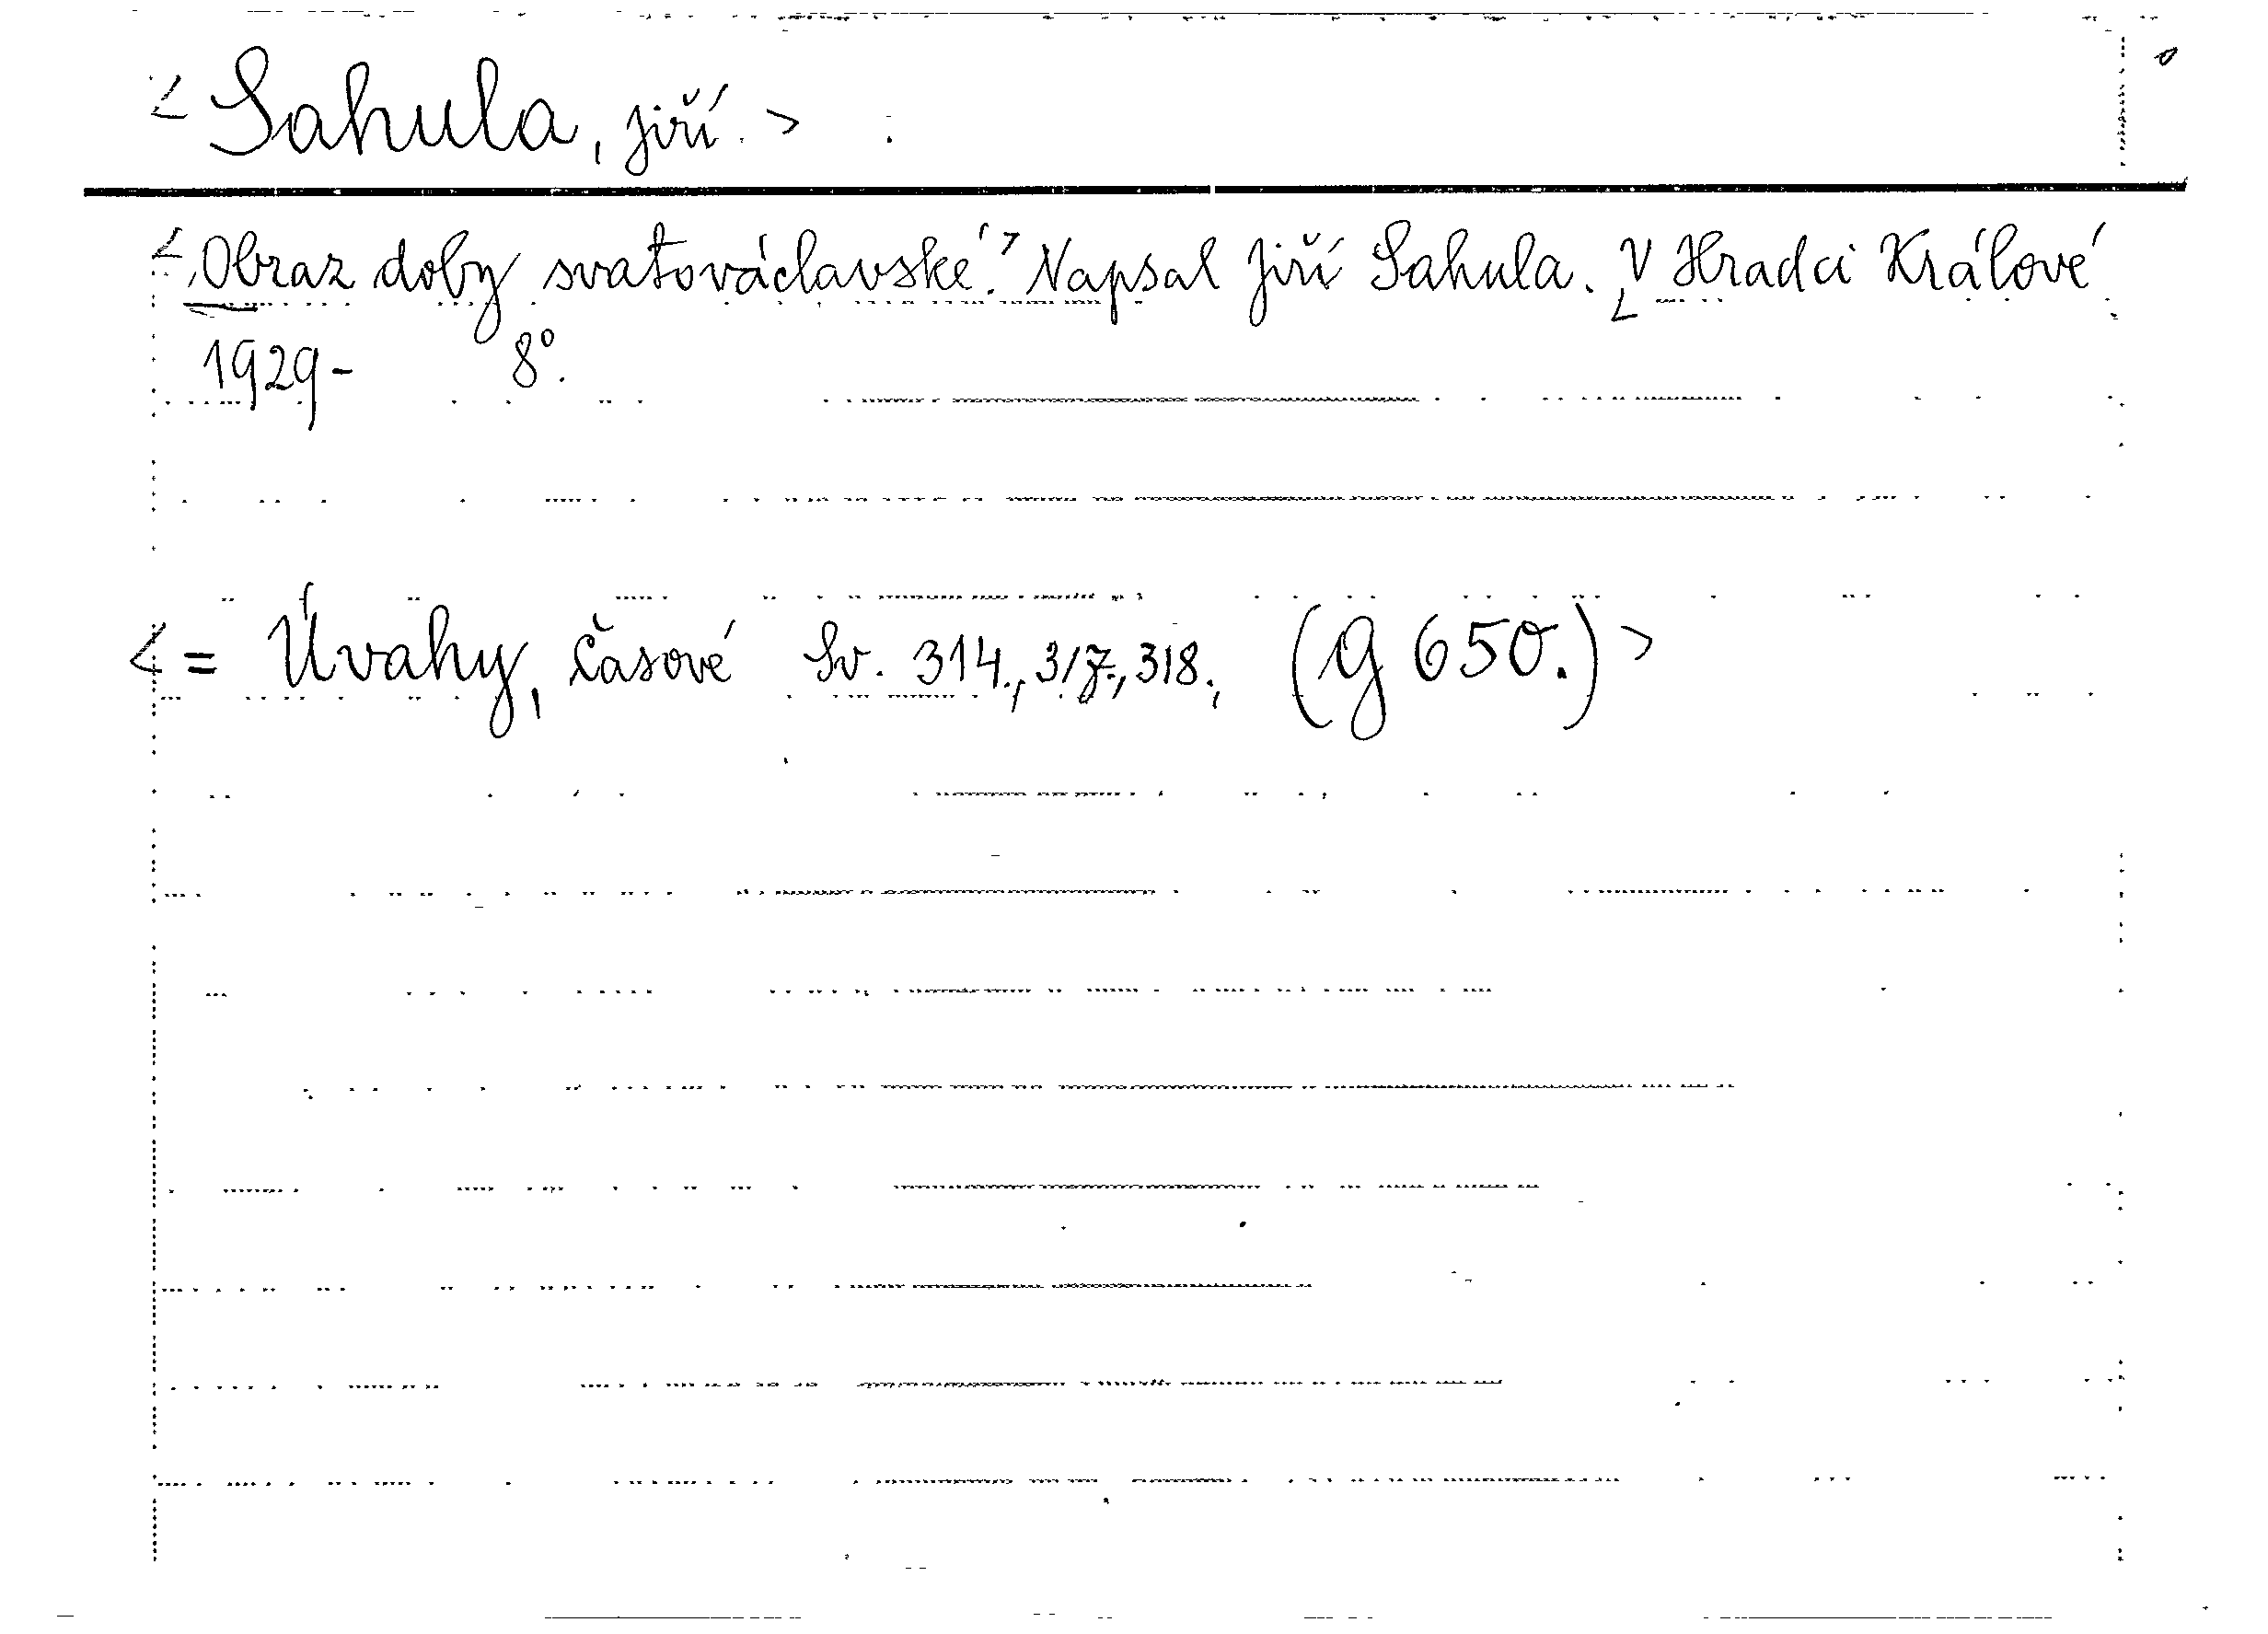 < Sahula, Jiří. >
< Obraz doby svatováclavské. > Napsal Jiří Sahula. < V Hradci Králové
1929- 8°.
< = Úvahy, časové Sv. 314., 317., 318., (G 650.) >